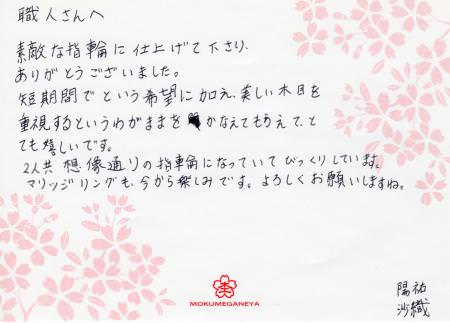 職人さんへ
素敵な指輪に仕上げて下さり、
ありがとうございました。
短期間でという希望に加え、美しい木目を
重視するというわがままを かなえてもらえて、と
ても嬉しいです。
2人共 想像通りの指輪になっていて びっくりしています。
マリッジリングも、今から楽しみです。よろしくお願いしますね。
MOKUMEGANEYA
陽祐
沙織